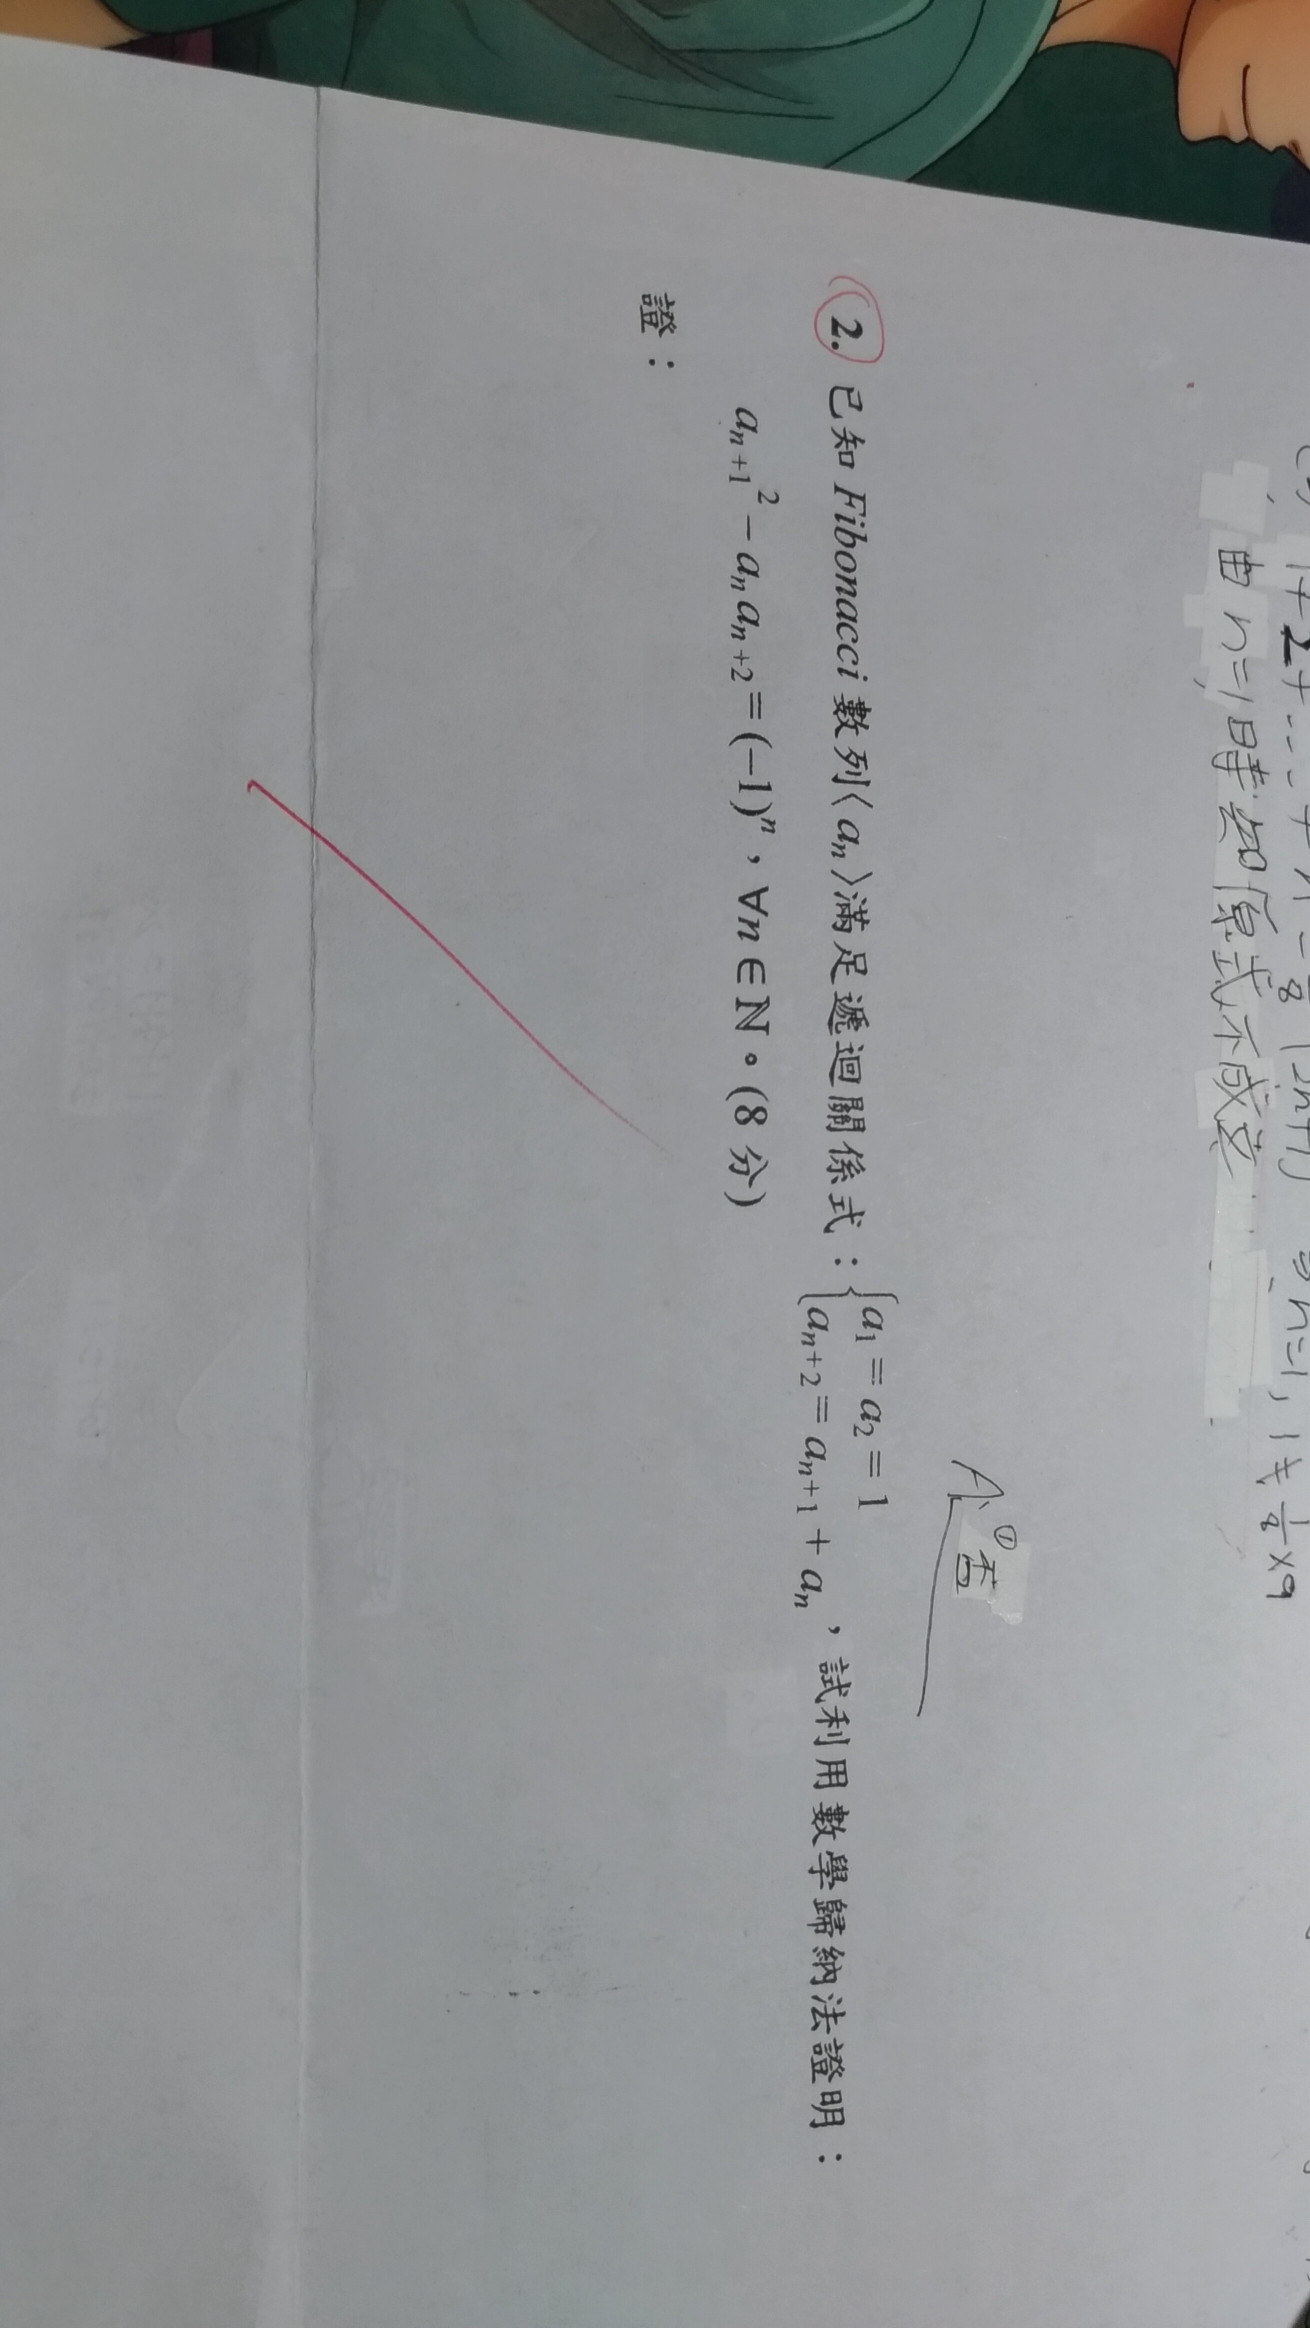 由 n=1 時知原式不成立
A: ① 否
2. 已知 Fibonacci 數列〈aₙ〉滿足遞迴關係式：{a₁ = a₂ = 1
aₙ₊₂ = aₙ₊₁ + aₙ ，試利用數學歸納法證明：
aₙ₊₁² − aₙaₙ₊₂ = (−1)ⁿ，∀n∈ℕ。(8 分)
證：